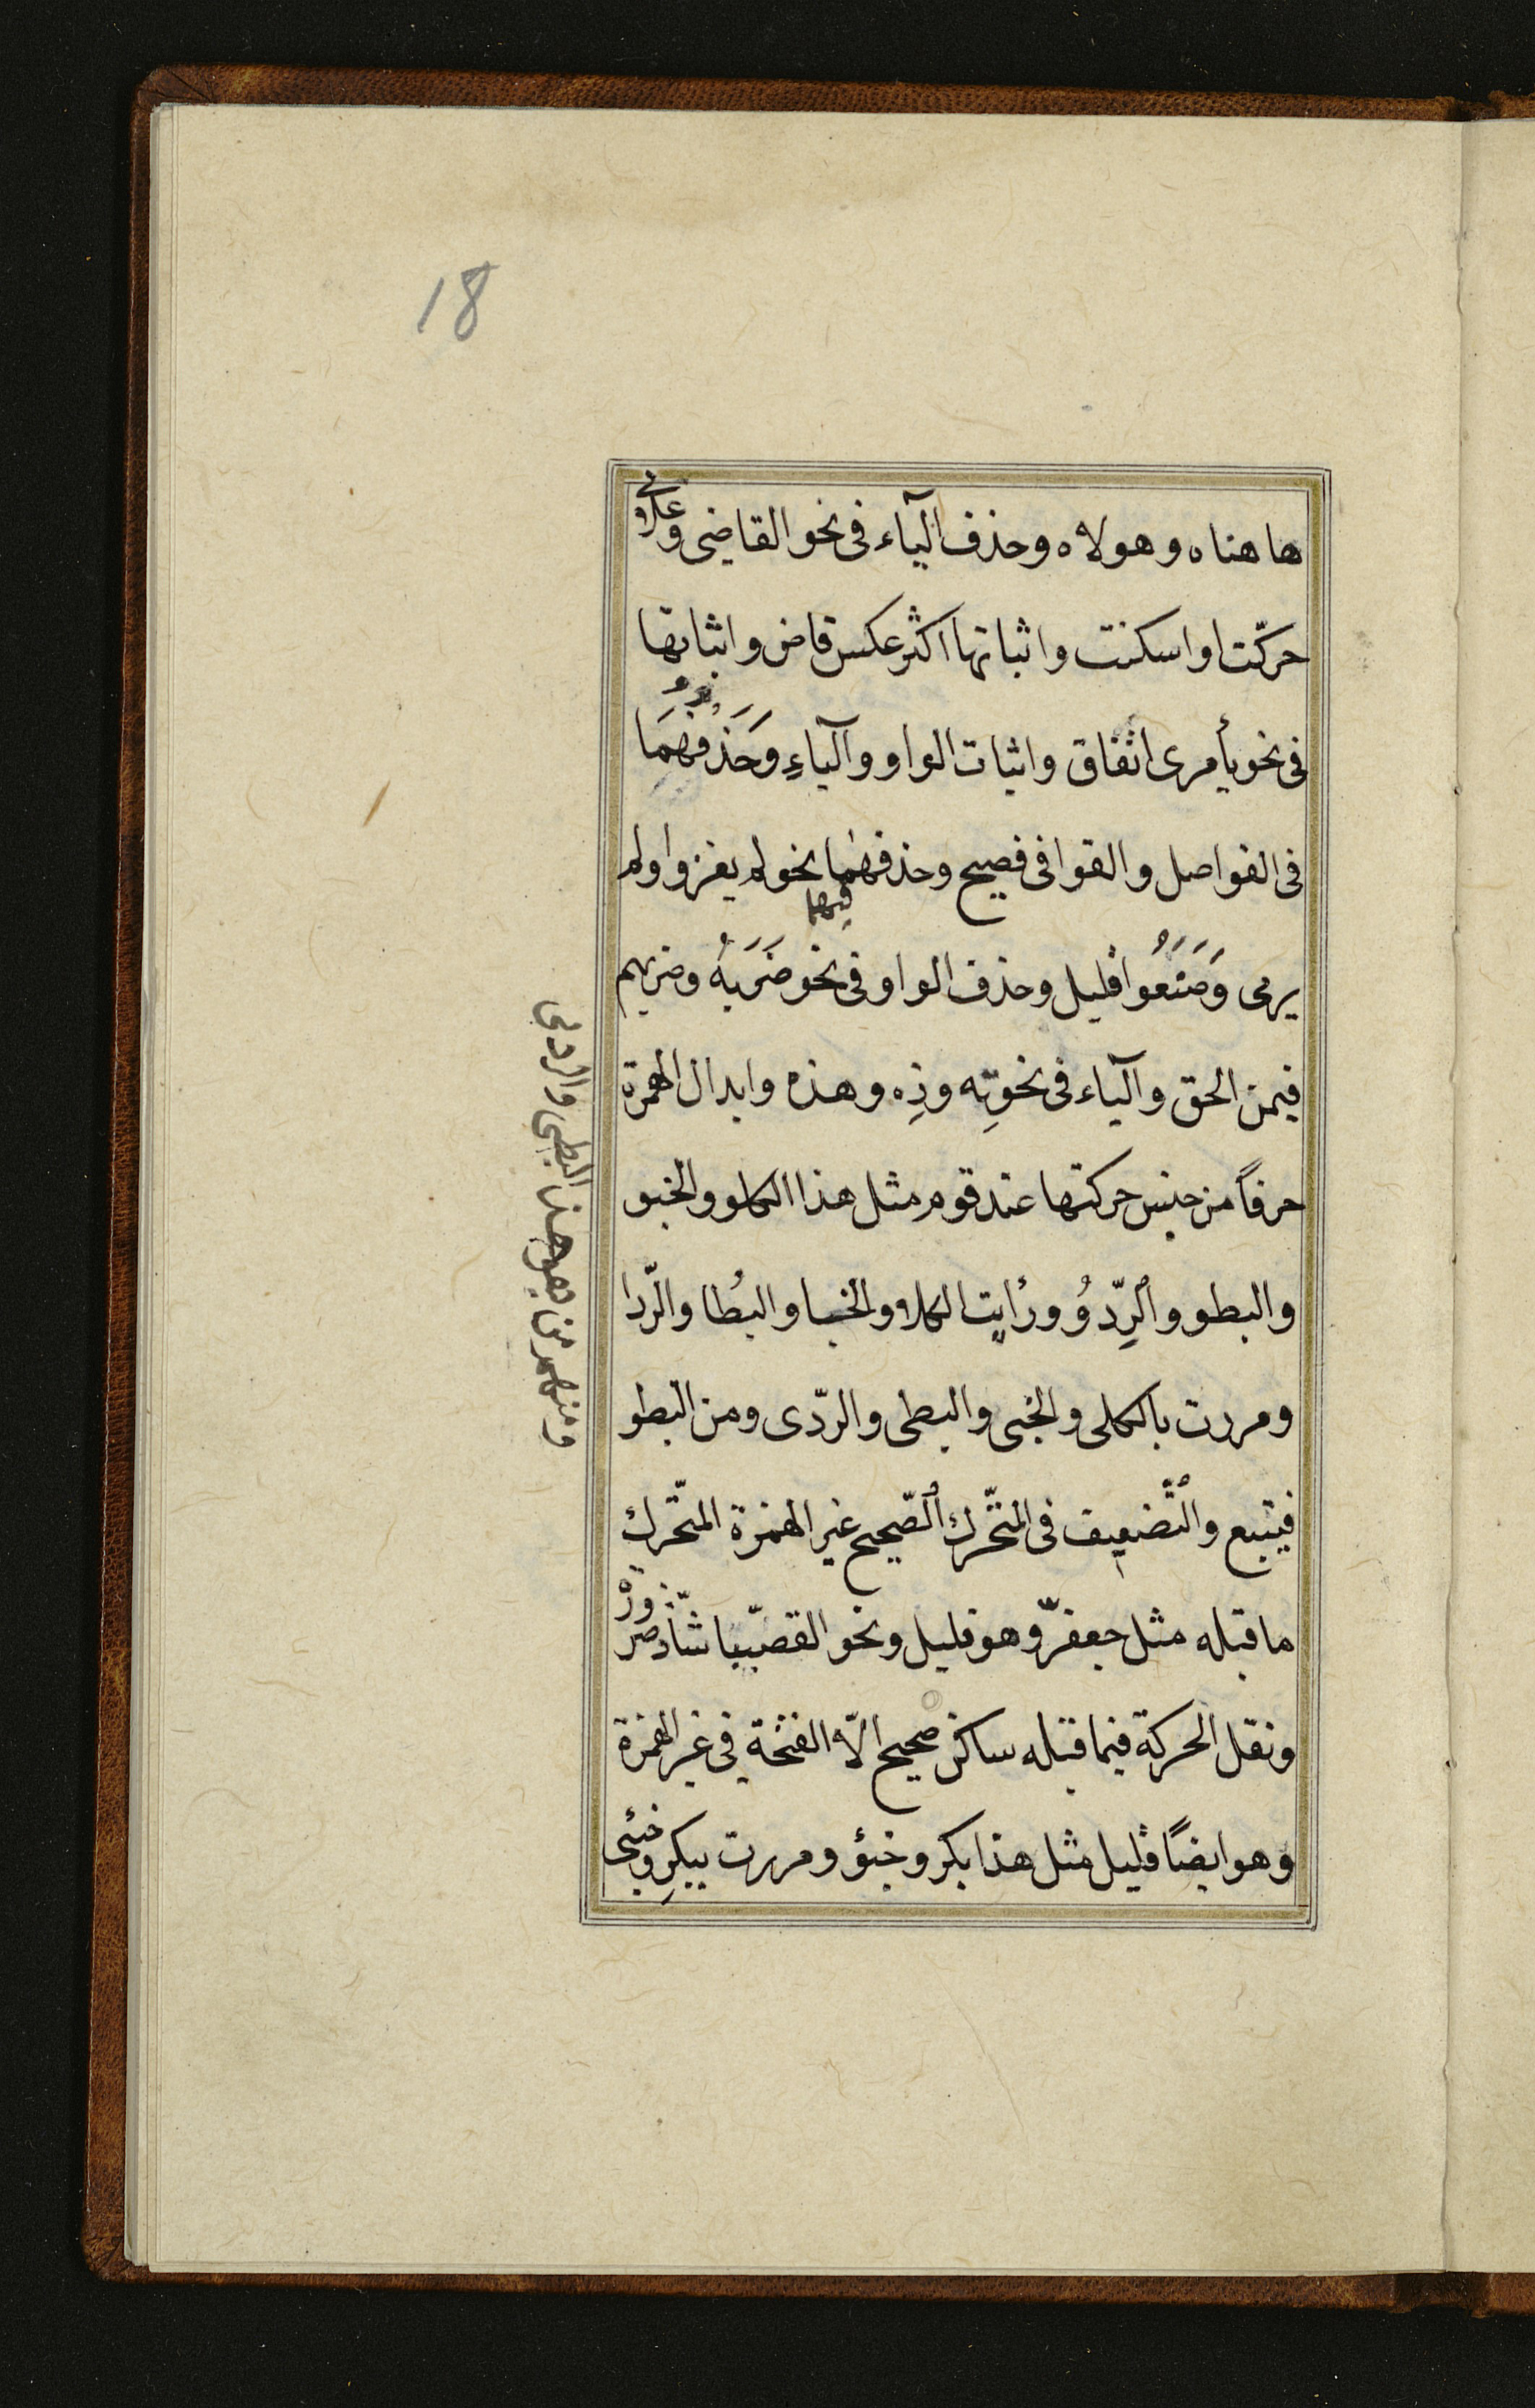 18
ها هناه وهولاه وحذف الیآء فی نحو القاضی وغلامی
حرّکت او اسکنت واثباتها اکثر عکس قاض واثباتها
فی نحو یأمری اتفاق واثبات الواو والیآءِ وَحَذْفُهُمَا
فی الفواصل والقوافی فصیح وحذفهما فیهما نحو لم یغزوا ولم
یرمی وَصَنَعُوا قلیل وحذف الواو فی نحو ضَرَبَهُ وضربهم
فیمن الحق والیآء فی نحو تِه وذِه وهذه وابدال الهمزة
حرفاً من جنس حرکتها عند قوم مثل هذا الکلو والخبو
والبطو والرِّدُو ورأیت الکلا والخبا والبُطا والرّدا
ومررت بالکلی والخبی والبطی والردّی ومن البطو
فیتبع والتّضعیف فی المتحّرك الصّحیح غیر الهمزة المتحّرك
ما قبله مثل جعفرّ وهو قلیل ونحو القصبّا شاّذ ضرورة
ونقل الحرکة فیما قبله ساکن صحیح الّا الفتحة فی غیر الهمزة
وهو ایضاً قلیل مثل هذا بکر وخبؤ ومررت ببکِر وخبئی
ومنهم من یقول هذا البطی والردی